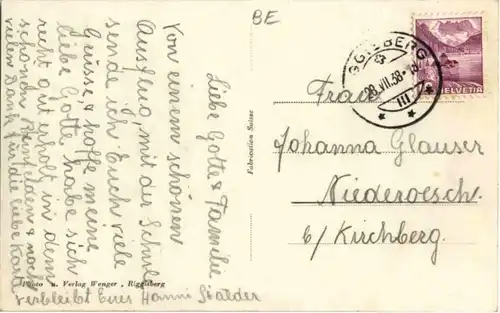 BE
Liebe Gotte & Familie
Von einem schönen
Ausflug, mit der Schule
sende ich Euch viele
Grüsse, & hoffe meine
liebe Gotte habe sich
recht gut erholt in dem
schönen Rheinfelden & noch
vielen Dank für die liebe Karte
verbleibt Eure Hanni Stalder
Photo u. Verlag Wenger, Riggisberg
Fabrication Suisse
GGISBERG
28.VII.38
III
HELVETIA
Frau
Johanna Glauser
Niederoesch
b/ Kirchberg.